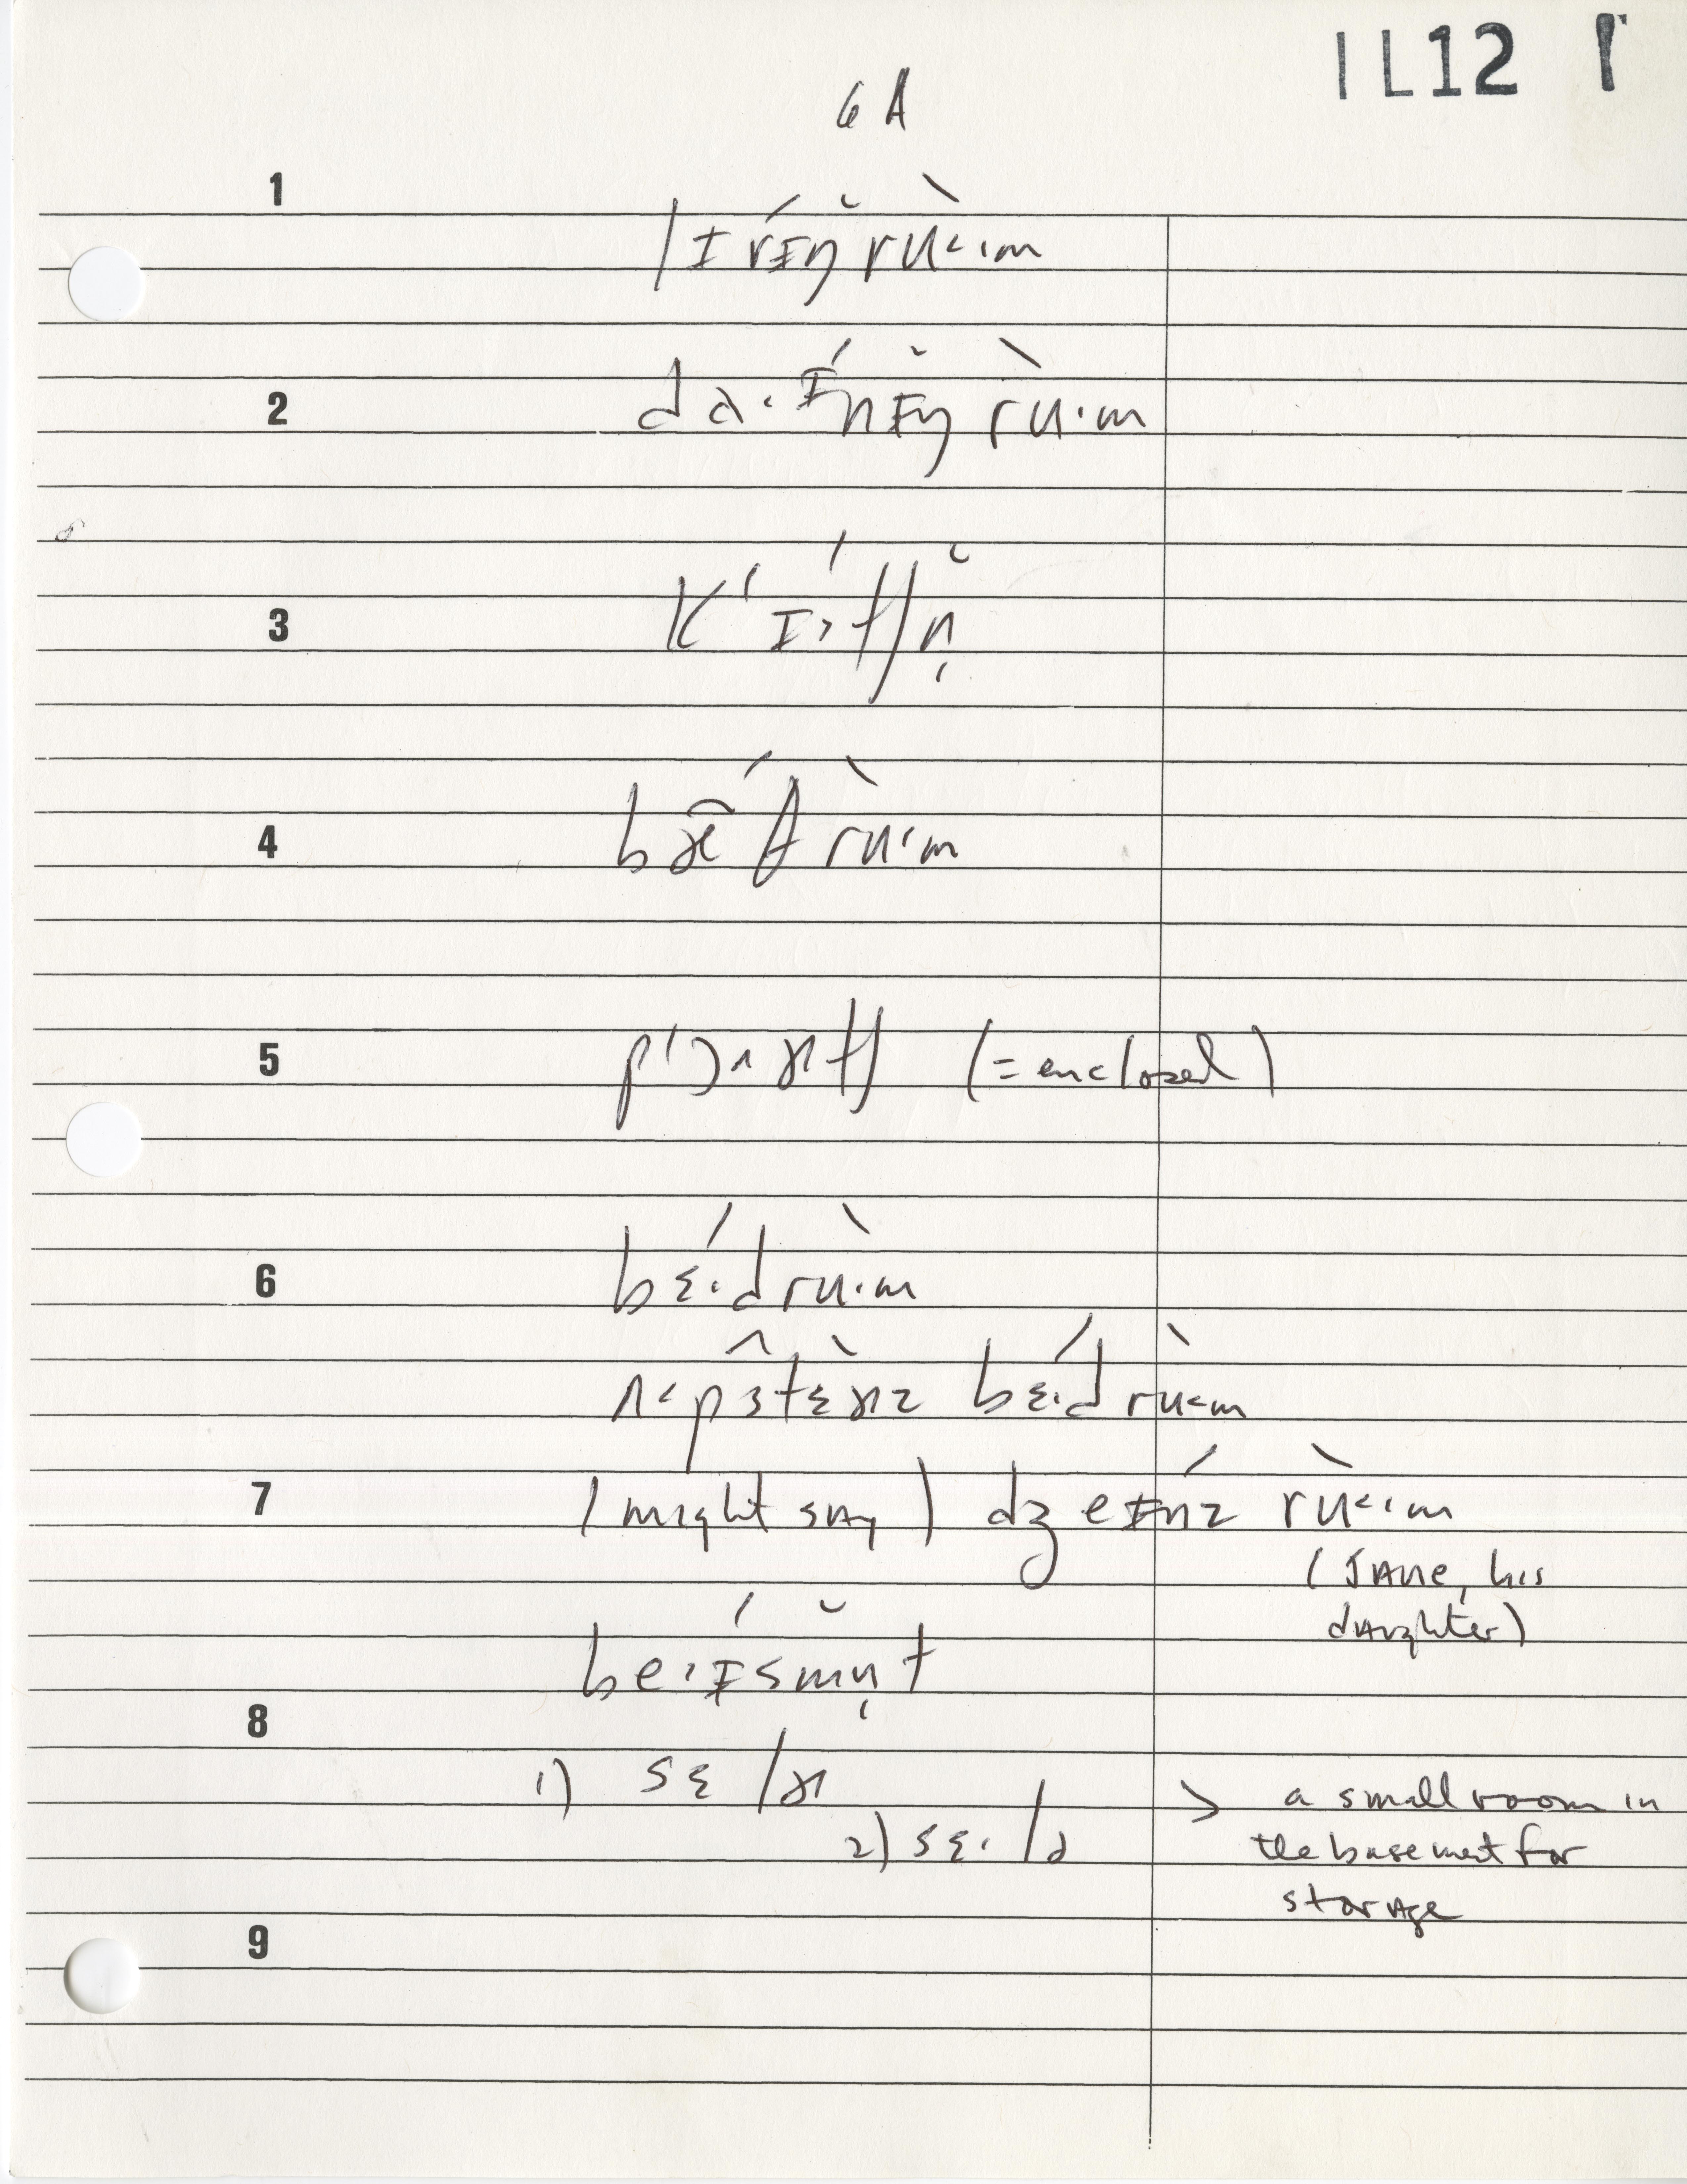 IL12
6A
1
lɪ́vɪ̆ŋ rù‹ˑm
2
dáˑᶦnɪ̆ŋ rùˑm
3
kʻɪ́˃tʃn̩̆
4
bǽθrùˑm
5
pʻɔ˄ɚtʃ (= enclosed)
6
bɛ́ˑdrùˑm
ʌ̂‹pstɛ̀ɚz bɛ́ˑdrù‹m
7
(might say) dʒéɪnz rù‹ˑm
(JANE, his
daughter)
béˑɪsmn̩̆t
8
1) sɛlɚ
2) sɛˑlə > a small room in
the basement for
storage
9